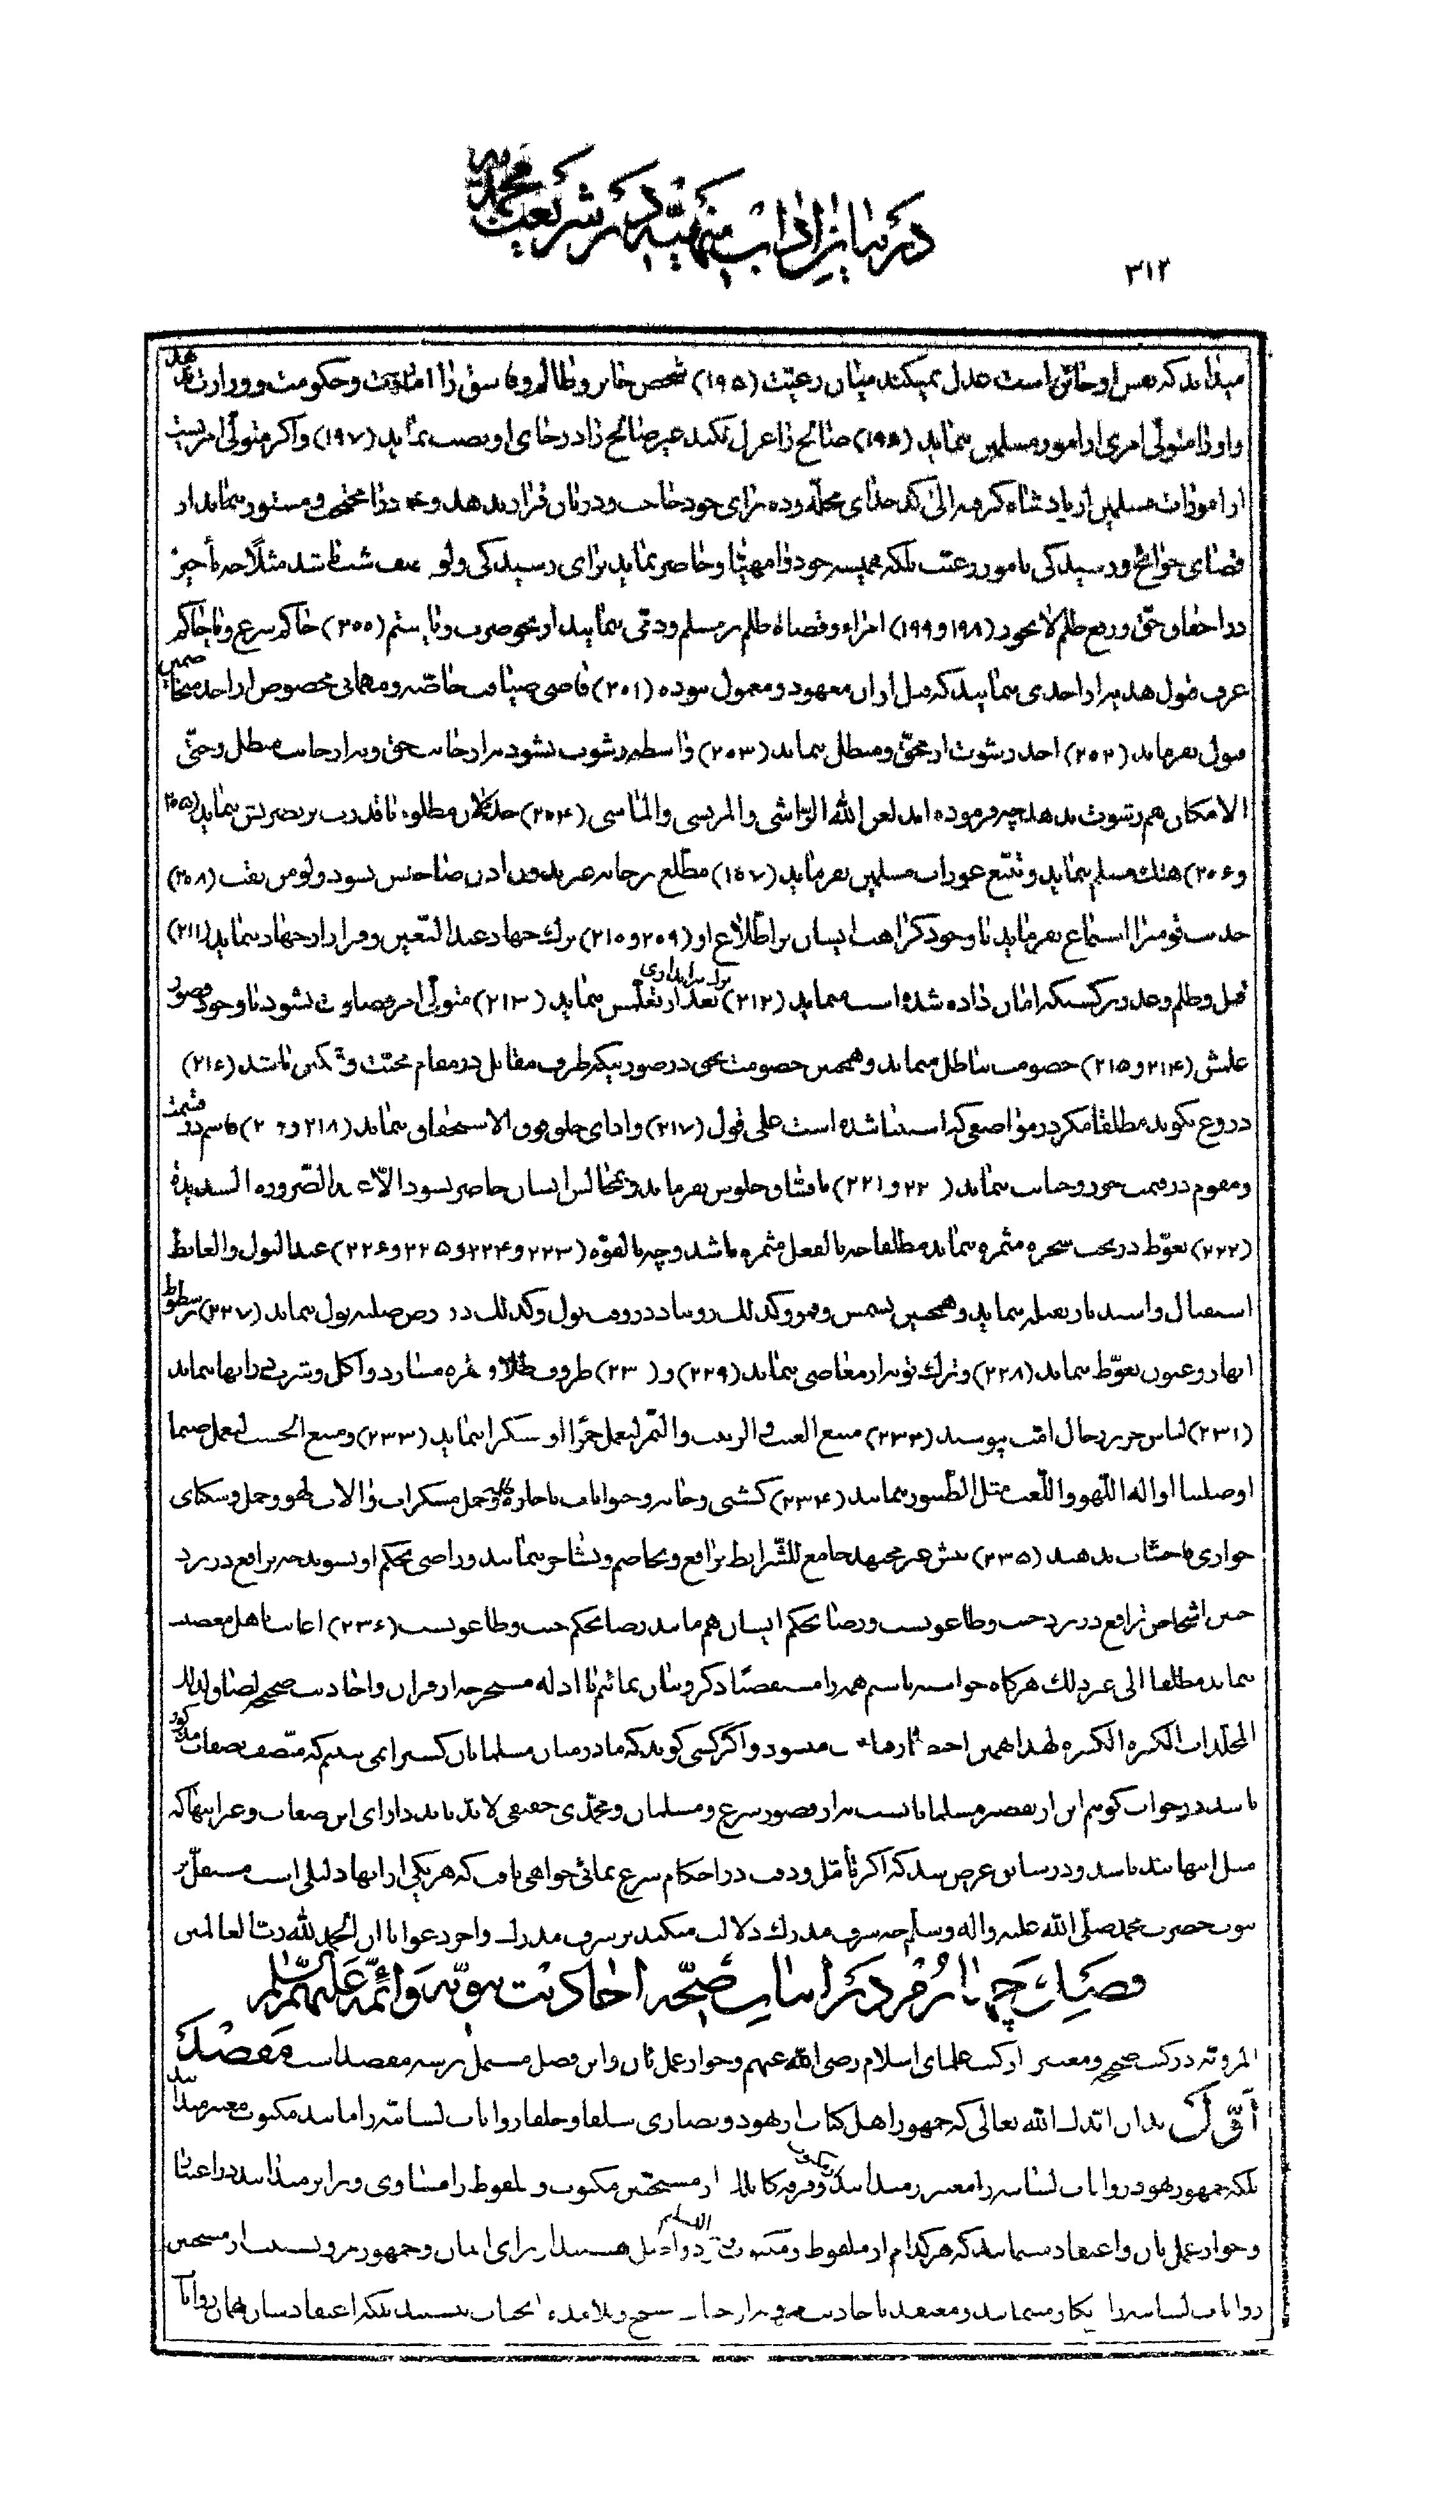 در بیان اداب منهیّه در شریعت محمدیه
۳۱۲
میداند که نفس او خائن است عدل نمیکند میان رعیّت (۱۹۵) شخص خائن و ظالم و فاسق را امارت و حکومت و وزارت ندهد
و او را متولّی امری از امور مسلمین ننماید (۱۹۶) صالح را عزل نکند غیر صالح را در جای او نصب ننماید (۱۹۷) و اگر متولّی امریست
از امورات مسلمین از پادشاه گرفته الی کدخدای محلّه و ده برای خود حاجب و دربان قرار ندهد و خود را مخفی و مستور ننماید از
قضای حوائج و رسیدگی بامور رعیت بلکه همیشه خود را مهیّا و حاضر نماید برای رسیدگی ولو نصف شب باشد مثلاً چه تأخیر
در احقاق حقّ و رفع ظلم لا یجوز (۱۹۸ و ۱۹۹) امراء و قضاة ظلم بر مسلم و ذمّی ننمایند از نحو ضرب و یا شتم (۲۰۰) حاکم شرع و یا حاکم
عرف قبول هدیه از احدی ننمایند که قبل از آن معهود و معمول نبوده (۲۰۱) قاضی ضیافت خاصّه و مهمانی مخصوص از احد متخاصمین
قبول نفرماید (۲۰۲) اخذ رشوت از محقّ و مبطل ننماید (۲۰۳) واسطه رشوت نشود نه از جانب حق و نه از جانب مبطل و حتّی
الامکان هم رشوت ندهد چه فرموده اند لعن الله الرّاشی والمرتشی والماشی (۲۰۴) خذلان مظلوم با قدرت بر نصرتش ننماید (۲۰۵
و ۲۰۶) هتک مسلم ننماید و تتبّع عورات مسلمین نفرماید (۱۵۷) مطّلع بر خانه غیر بدون اذن صاحبش نشود ولو من نقب (۲۰۸)
حدیث قومیرا استماع نفرماید با وجود کراهت ایشان بر اطّلاع او (۲۰۹ و ۲۱۰) ترک جهاد عند التعیین و فرار از جهاد ننماید (۲۱۱)
قتل و ظلم و غدر بر کسیکه امان داده شده است ننماید (۲۱۲) ترک تیراندازی بعد از تعلّمش ننماید (۲۱۳) متولّی امر قضاوت نشود با وجود قصور
علمش (۲۱۴ و ۲۱۵) خصومت بباطل ننماید و همچنین خصومت بحق در صورتیکه طرف مقابل در مقام محبّت و تمکین باشد (۲۱۶)
دروغ نگوید مطلقا مگر در مواضعی که استثنا شده است علی قول (۲۱۷) و ادای حلوه فوق الاستحقاق ننماید (۲۱۸ و ۲۰۹) قاسم در قسمت
و مقوم در قیمت جور و خیانت ننماید (۲۲۰ و ۲۲۱) با فسّاق جلوس نفرماید و بمجالس ایشان حاضر نشود الّا عند الضّروره الشدیده
(۲۲۲) تغوّط در تحت شجره مثمره ننماید مطلقا چه بالفعل مثمره باشد و چه بالقوّه (۲۲۳ و ۲۲۴ و ۲۲۵ و ۲۲۶) عند البول والغایط
استقبال و استدبار بقبله ننماید و همچنین بشمس و قمر و کذلک رو بباد در وقت بول و کذلک در ارض صلبه بول ننماید (۲۲۷) بر شطوط
انهار و عیون تغوّط ننماید (۲۲۸) و ترک توبه از معاصی ننماید (۲۲۹) و (۲۳۰) ظروف طلا و نقره نسازد و اکل و شرب در آنها ننماید
(۲۳۱) لباس حریر رجال امّت نپوشند (۲۳۲) مبیع العنب والزبیب والتّمر لیعمل خمرا او مسکرا ننماید (۲۳۳) و مبیع الخشب لیعمل صنما
او صلیبا او آلة اللّهو واللّعب مثل الطّنبور ننمایند (۲۳۴) کشتی و خانه و حیوانات باجاره حمل مسکرات و آلات لهو و حمل و سکنای
جواری فاحشات ندهند (۲۳۵) پیش غیر مجتهد جامع للشّرایط ترافع و تخاصم و تشاجر ننمایند و راضی بحکم او نشوند چه ترافع در نزد
چنین اشخاص ترافع در نزد جبت و طاغوتست و رضا بحکم ایشان هم مانند رضا بحکم جبت و طاغوتست (۲۳۶) اعانت باهل معصیت
ننماید مطلقا الی غیر ذلک هرگاه خواسته باشیم همه را مستقصیا ذکر و بیان نمائیم با ادله مستخرجه از قران و احادیث صحیحه لضاق لذلک
المجلّدات الکبیره الکثیره لهذا همین اختصار میشود و اگر کسی گوید که ما در میان مسلمانان کسیرا نمی بینیم که متّصف بصفات مذکور
باشد در جواب گوئیم این از تقصیر مسلمانانست نه از قصور شرع و مسلمان و محمّدی حقیقی لا بدّ باید دارای این صفات و غیر اینها که
مثل اینها بند باشد و در سابق عرض شد که اگر تأمّل و دقت در احکام شرع نمائی خواهی یافت که هر یکی از اینها دلیلی است مستقلّ بر
نبوت حضرت محمد صلّی الله علیه و اله و سلّم چه شرف مدرک دلالت میکند بر شرف مدرِک و اخر دعوانا ان الحمد لله ربّ العالمین
فصل چهارم در اثبات صحّه احادیث نبویّه و ائمّه علیهم السّلم
المرویّه در کتب صحیحه و معتبر از کتب علمای اسلام رضی الله عنهم و جواز عمل بآن و این فصل مشتمل بر سه مقصد است مقصد
اوّل بدان ایّدک الله تعالی که جمهور اهل کتاب از یهود و نصاری سلفا و خلفا روایات لسانیّه را مانند مکتوب معتبر میدانند
بلکه جمهور یهود روایات لسانیه را معتبرتر میدانند از مکتوب و فرقه کاتلک از مسیحیّین مکتوب و ملفوظ را مساوی و برابر میدانند در اعتبار
و جواز عمل بآن و اعتقاد مینمایند که هر کدام از ملفوظ و مکتوب واجب التسلیم و دو اصل هستند از برای ایمان و جمهور پروتستنت از مسیحیین
روایات لسانیه را انکار مینمایند و معتقد باحادیث مرویه از جناب مسیح و تلامذه انجناب نیستند بلکه اعتقادشان همان روایات